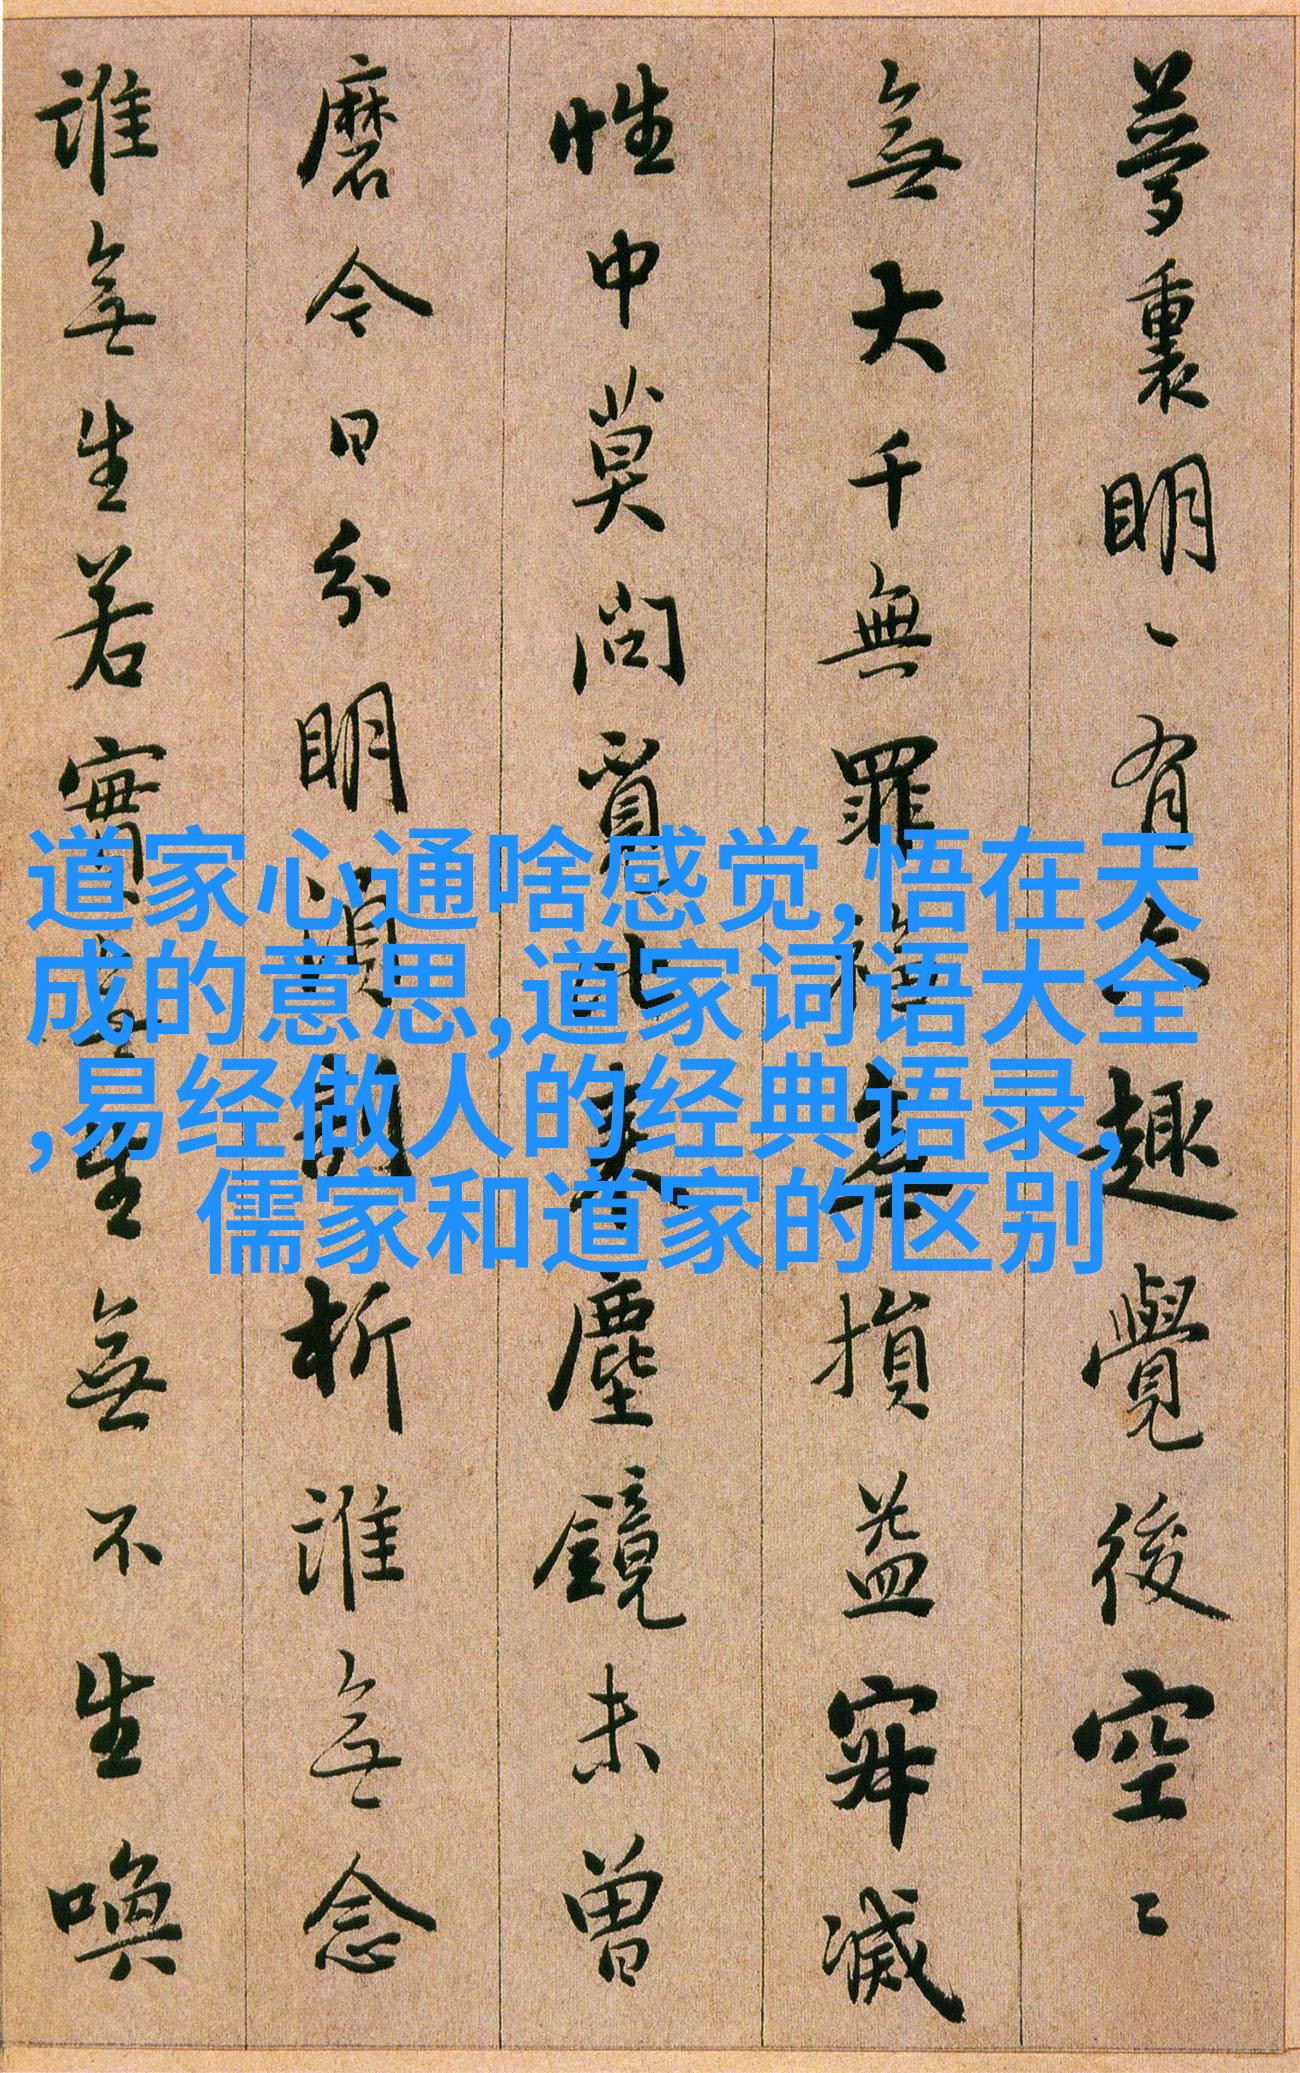 夢裏明、有六趣覺後空〻
無大千無罪福無損益寂滅
性中莫問覓比來塵鏡未曾
磨今日分明須剖析誰無念
誰無生若實無生無不生喚
道家心通啥感觉,悟在天
成的意思,道家词语大全
,易经做人的经典语录,
儒家和道家的区别